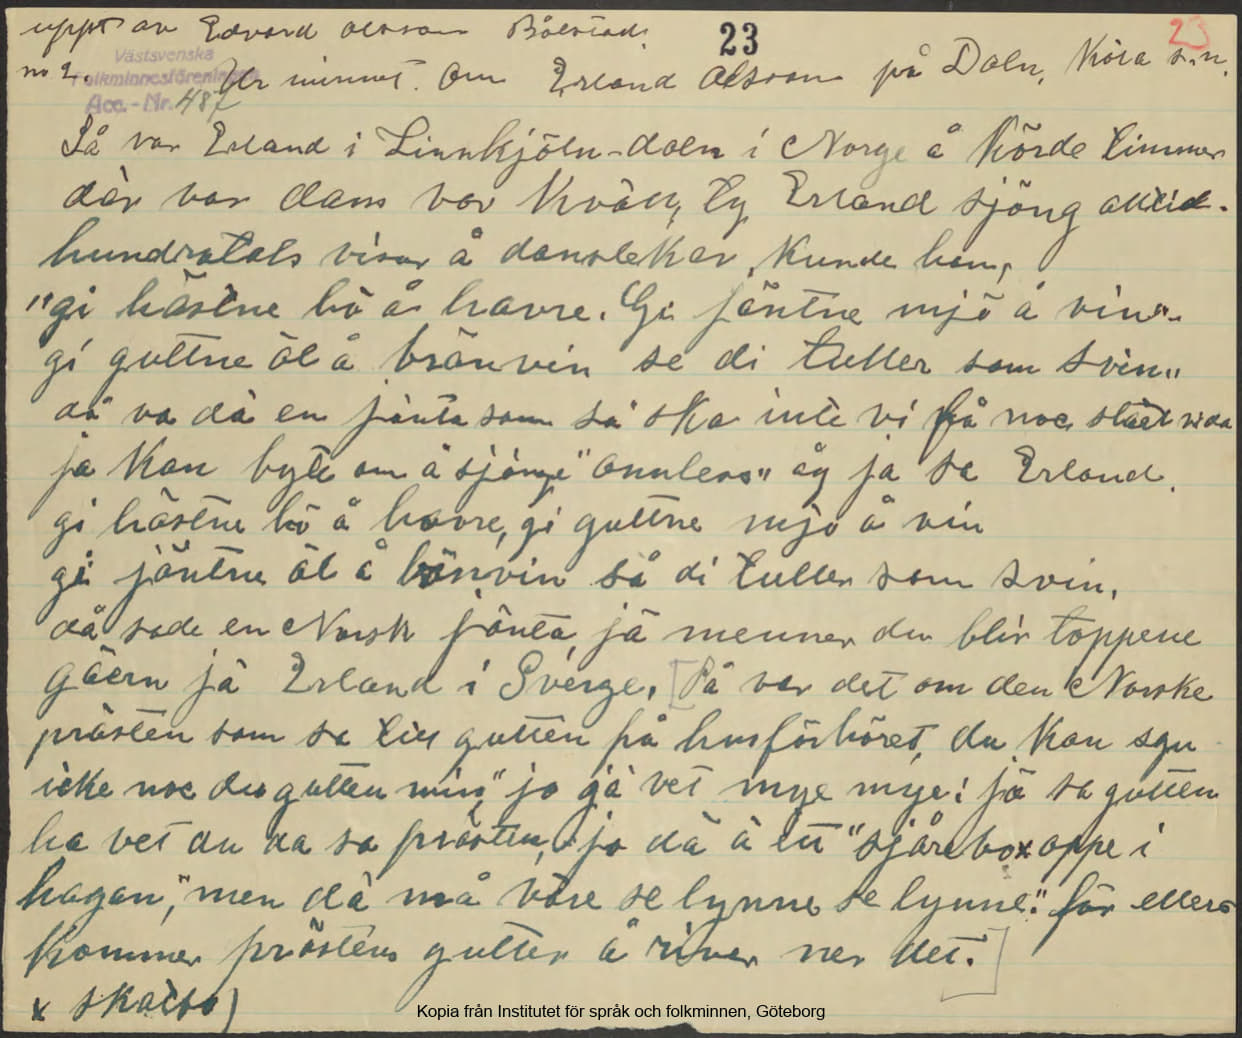 uppt av Edvard Olsson Bålstad.
23
23
Västsvenska
Folkminnesföreningen
Acc.-Nr. 487
no 2. Ur minnet. Om Erland Olsson på Daln, Köla s.n.
Så var Erland i Linnkjöln-daln i Norge å körde timmer
där var dans var kväll, ty Erland sjöng alltid.
hundratals visor å danslekar, kunde han,
"gi hästne hö å havre. Gi jäntne mjö å vin".
gi guttne öl å bränvin se di tuller som svin"
då va dä en jänta som sa ska inte vi få noe stået vida
ja kan byte om å sjönge "annlers" åg ja sa Erland.
gi hästne hö å havre, gi guttne mjö å vin
gi jäntne öl å bränvin så di tuller som svin.
då sade en Norsk jänta, jä menner du blir toppene
gäern jä Erland i Sverge. [Så var det om den Norske
prästen som sa till gutten på husförhöret, du kan sgu
icke noe du gutten min," jo jä vet mye mye! jä sa gutten
ha vet du da sa prästen, jo dä ä ett "sjårebo x oppe i
hagan," men dä må våre se lynne se lynne." för ellers
kommer prästens gutter å river ner det.]
x skatbo)
Kopia från Institutet för språk och folkminnen, Göteborg